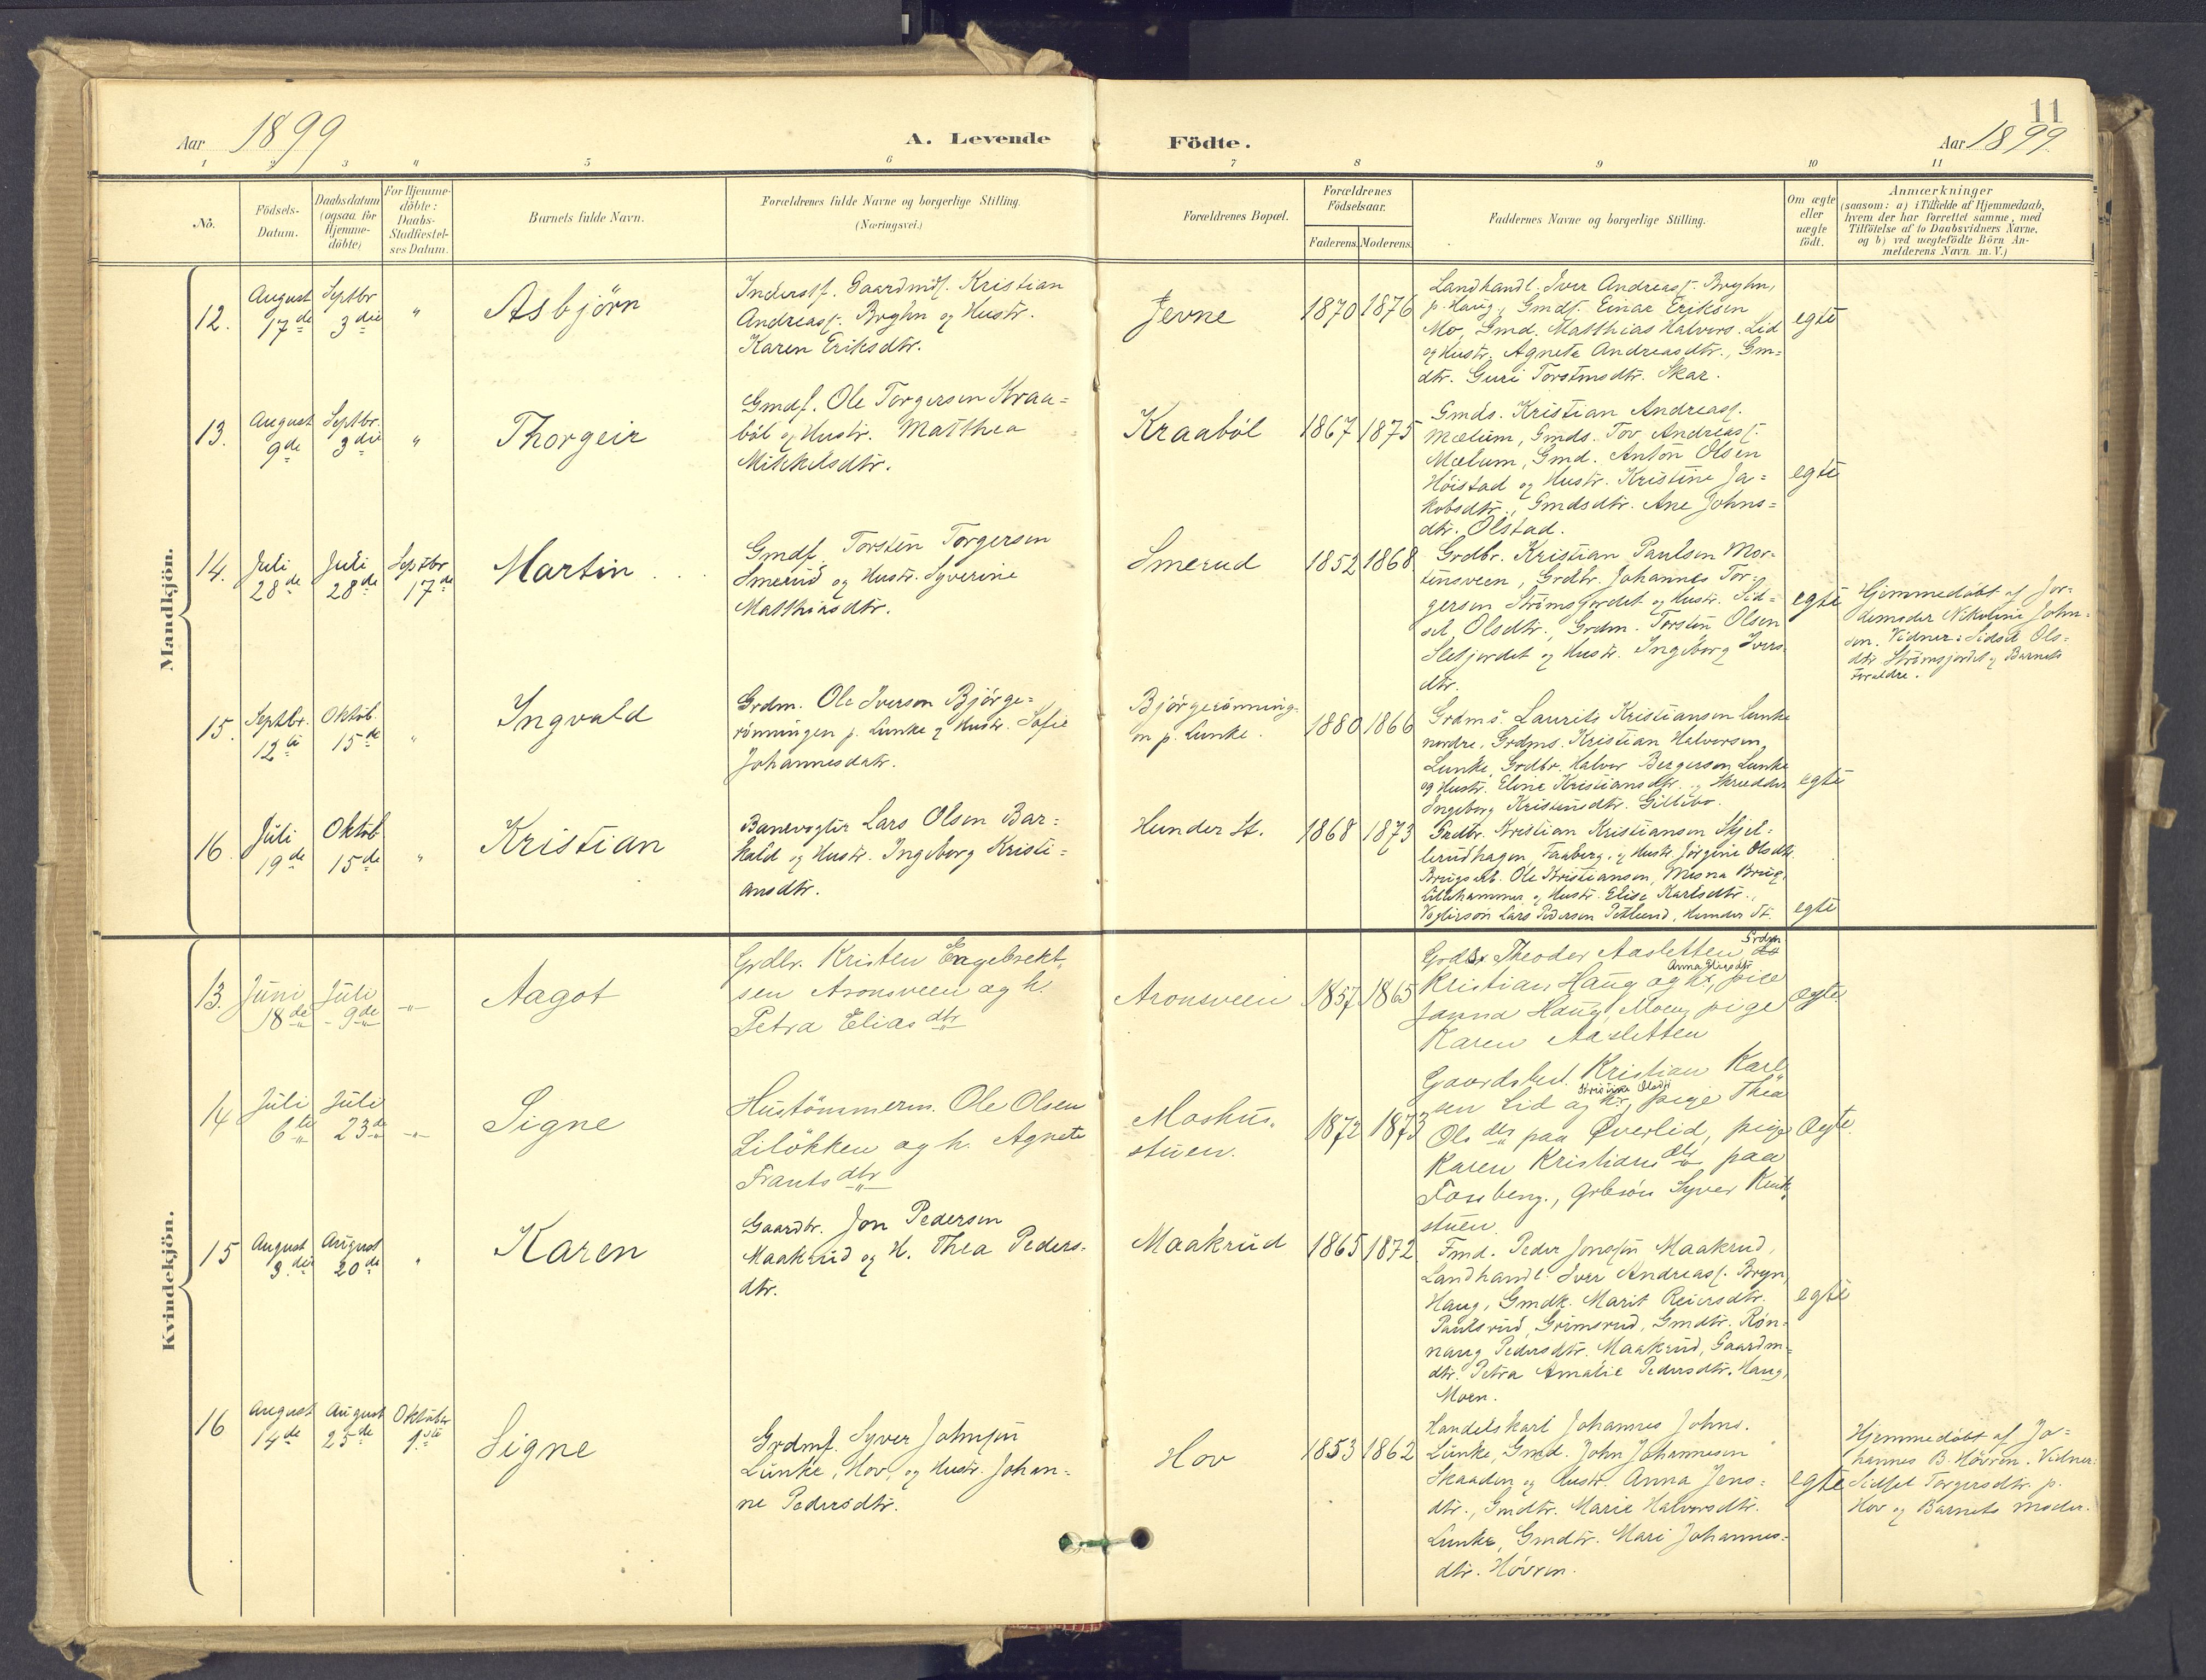 11
Aar 1899
A. Levende
Födte.
Aar 1899.
1 2 3 " 5 6 7 8 9 10 11
No.
Födsels-
Datum.
Daabsdatum
(ogsaa for
Hjemme-
döbte)
For Hjemme-
döbte:
Daabs-
Stadfæstel-
ses Datum.
Barnets fulde Navn.
Forældrenes fulde Navne og borgerlige Stilling.
(Næringsvei.)
Forældrenes Bopæl.
Forældrenes
Födselsaar.
Faderens. Moderens.
Faddernes Navne og borgerlige Stilling.
Om ægte
eller
uægte
födt.
Anmærkninger
(saasom: a) i Tilfælde af Hjemmedaab,
hvem der har forrettet samme, med
Tilföielse af to Daabsvidners Navne.
og b) ved uægtefödte Börn An-
melderens Navn m. V.)
Mandkjön.
12.
August
17de
Septbr
3die
"
Asbjörn
Inderstf. Gaardmdf. Kristian
Andreasf. Bryhn og Hustr.
Karen Eriksdtr.
Jevne
1870 1876
Landhandl. Iver Andreasf. Bryhn,
p. Haug, Gmdf. Einar Eriksen
Mo, Gmd. Matthias Halvors. Lid
og Hustr. Agnete Andreasdtr., Gm=
dtr. Guri Torstensdtr. Skar.
egte
13.
August
9de
Septbr.
3die
"
Thorgeir
Gmdf. Ole Torgersen Kraa=
böl og Hustr. Matthea
Mikkelsdtr.
Kraaböl
1867 1875
Gmds. Kristian Andreasf.
Mælum, Gmds. Tov Andreasf.
Mælum, Gmd. Anton Olsen
Höistad og Hustr. Kristine Ja=
kobsdtr., Gmdsdtr. Ane Johns=
dtr. Olstad.
egte
14.
Juli
28de
Juli
28de
Septbr
17de
Martin
Gmdf. Torsten Torgersen
Smerud og Hustr. Syverine
Matthiasdtr.
Smerud
1852 1868
Grdbr. Kristian Paulsen Mor=
tensveen, Grdbr. Johannes Tor=
gersen Strömsjordet og Hustr. Sid=
sel Olsdtr., Grdm. Torsten Olsen
Sletjordet og Hustr. Ingeborg Ivers
dtr.
egte
Hjemmedöbt af Jor=
demoder Nikoline John=
sen. Vidner: Sidsel Ols=
dtr Strömsjordet og Barnets
Forældre.
15.
Septbr.
12te
Oktob.
15de
"
Ingvald
Grdm. Ole Iverson Björge=
rönningen p. Lunke og Hustr. Sofie
Johannesdatr.
Björgerönning-
en p. Lunke.
1880 1866
Grdms. Laurits Kristiansen Lunke
nordre, Grdms. Kristian Halvorsen
Lunke, Grdbr. Halvor Bergersen Lunke
og Hustr. Eline Kristiansdtr. og Skrædder
Ingeborg Kristensdtr. Gillibo.
egte
16.
Juli
19de
Oktob
15de
"
Kristian
Banevogter Lars Olsen Bar=
kald og Hustr. Ingeborg Kristi=
ansdtr.
Hunder St.
1868 1873
Grdbr. Kristian Kristiansen Skjel=
lerudhagen, Faaberg, og Hustr. Jörgine Olsdtr.
Brugsarb. Ole Kristiansen, Mesna Brug,
Lillehammer og Hustr. Elise Karlsdtr.,
Vogterson Lars Pedersen Petlund, Hunder St.
egte
Kvindekjön.
13.
Juni
18de
Juli
9de
"
Aagot
Grdbr. Kristen Engebrekt-
sen Aronsveen og h.
Petra Eliasdtr
Aronsveen
1857 1865
Grdbr. Theodor Aasletten Grdm
Kristian Haug og h., pige
Janna Haug, Moen, pige
Karen Aasletten
ægte
14
Juli
6te
Juli
23de
"
Signe
Hustömmerm. Ole Olsen
Lilökken og h. Agnete
Frantsdtr
Moshus-
stuen.
1872 1873
Gaardsbest. Kristian Karl-
sen Lid og h. Kristine Olsdtr, pige Thea
Olsdtr paa Överlid, pige
Karen Kristiansdtr paa
Fossberg., grbsön Syver Kirk-
stuen
Ægte.
15
August
3die
August
20de
"
Karen
Gaardbr. Jon Pedersen
Maakrud og H. Thea Peders=
dtr.
Maakrud
1865 1872
Fmd. Peder Jonsen Maakrud,
Landhandl. Iver Andreasf. Bryn,
Haug, Gmdk. Marit Reiersdtr.
Paulsrud, Grimsrud, Gmdtr. Rön=
naug Pedersdtr. Maakrud, Gaardm=
dtr. Petra Amalie Pedersdtr. Haug,
Moen.
egte
16
August
14de
August
25de
Oktober
1ste
Signe
Grdmf. Syver Johnsen
Lunke, Hov, og Hustr. Johan=
ne Pedersdtr.
Hov
1853 1862
Handelskarl Johannes Johns.
Lunke, Gmd. John Johannesen
Skaaden og Hustr. Anna Jens=
dtr., Gmdtr. Marie Halvorsdtr.
Lunke, Gmdtr. Mari Johannes=
dtr. Hövren.
egte
Hjemmedöbt af Jo=
hannes B. Hövren. Vidner:
Sidsel Torgersdtr. p.
Hov og Barnets Moder.